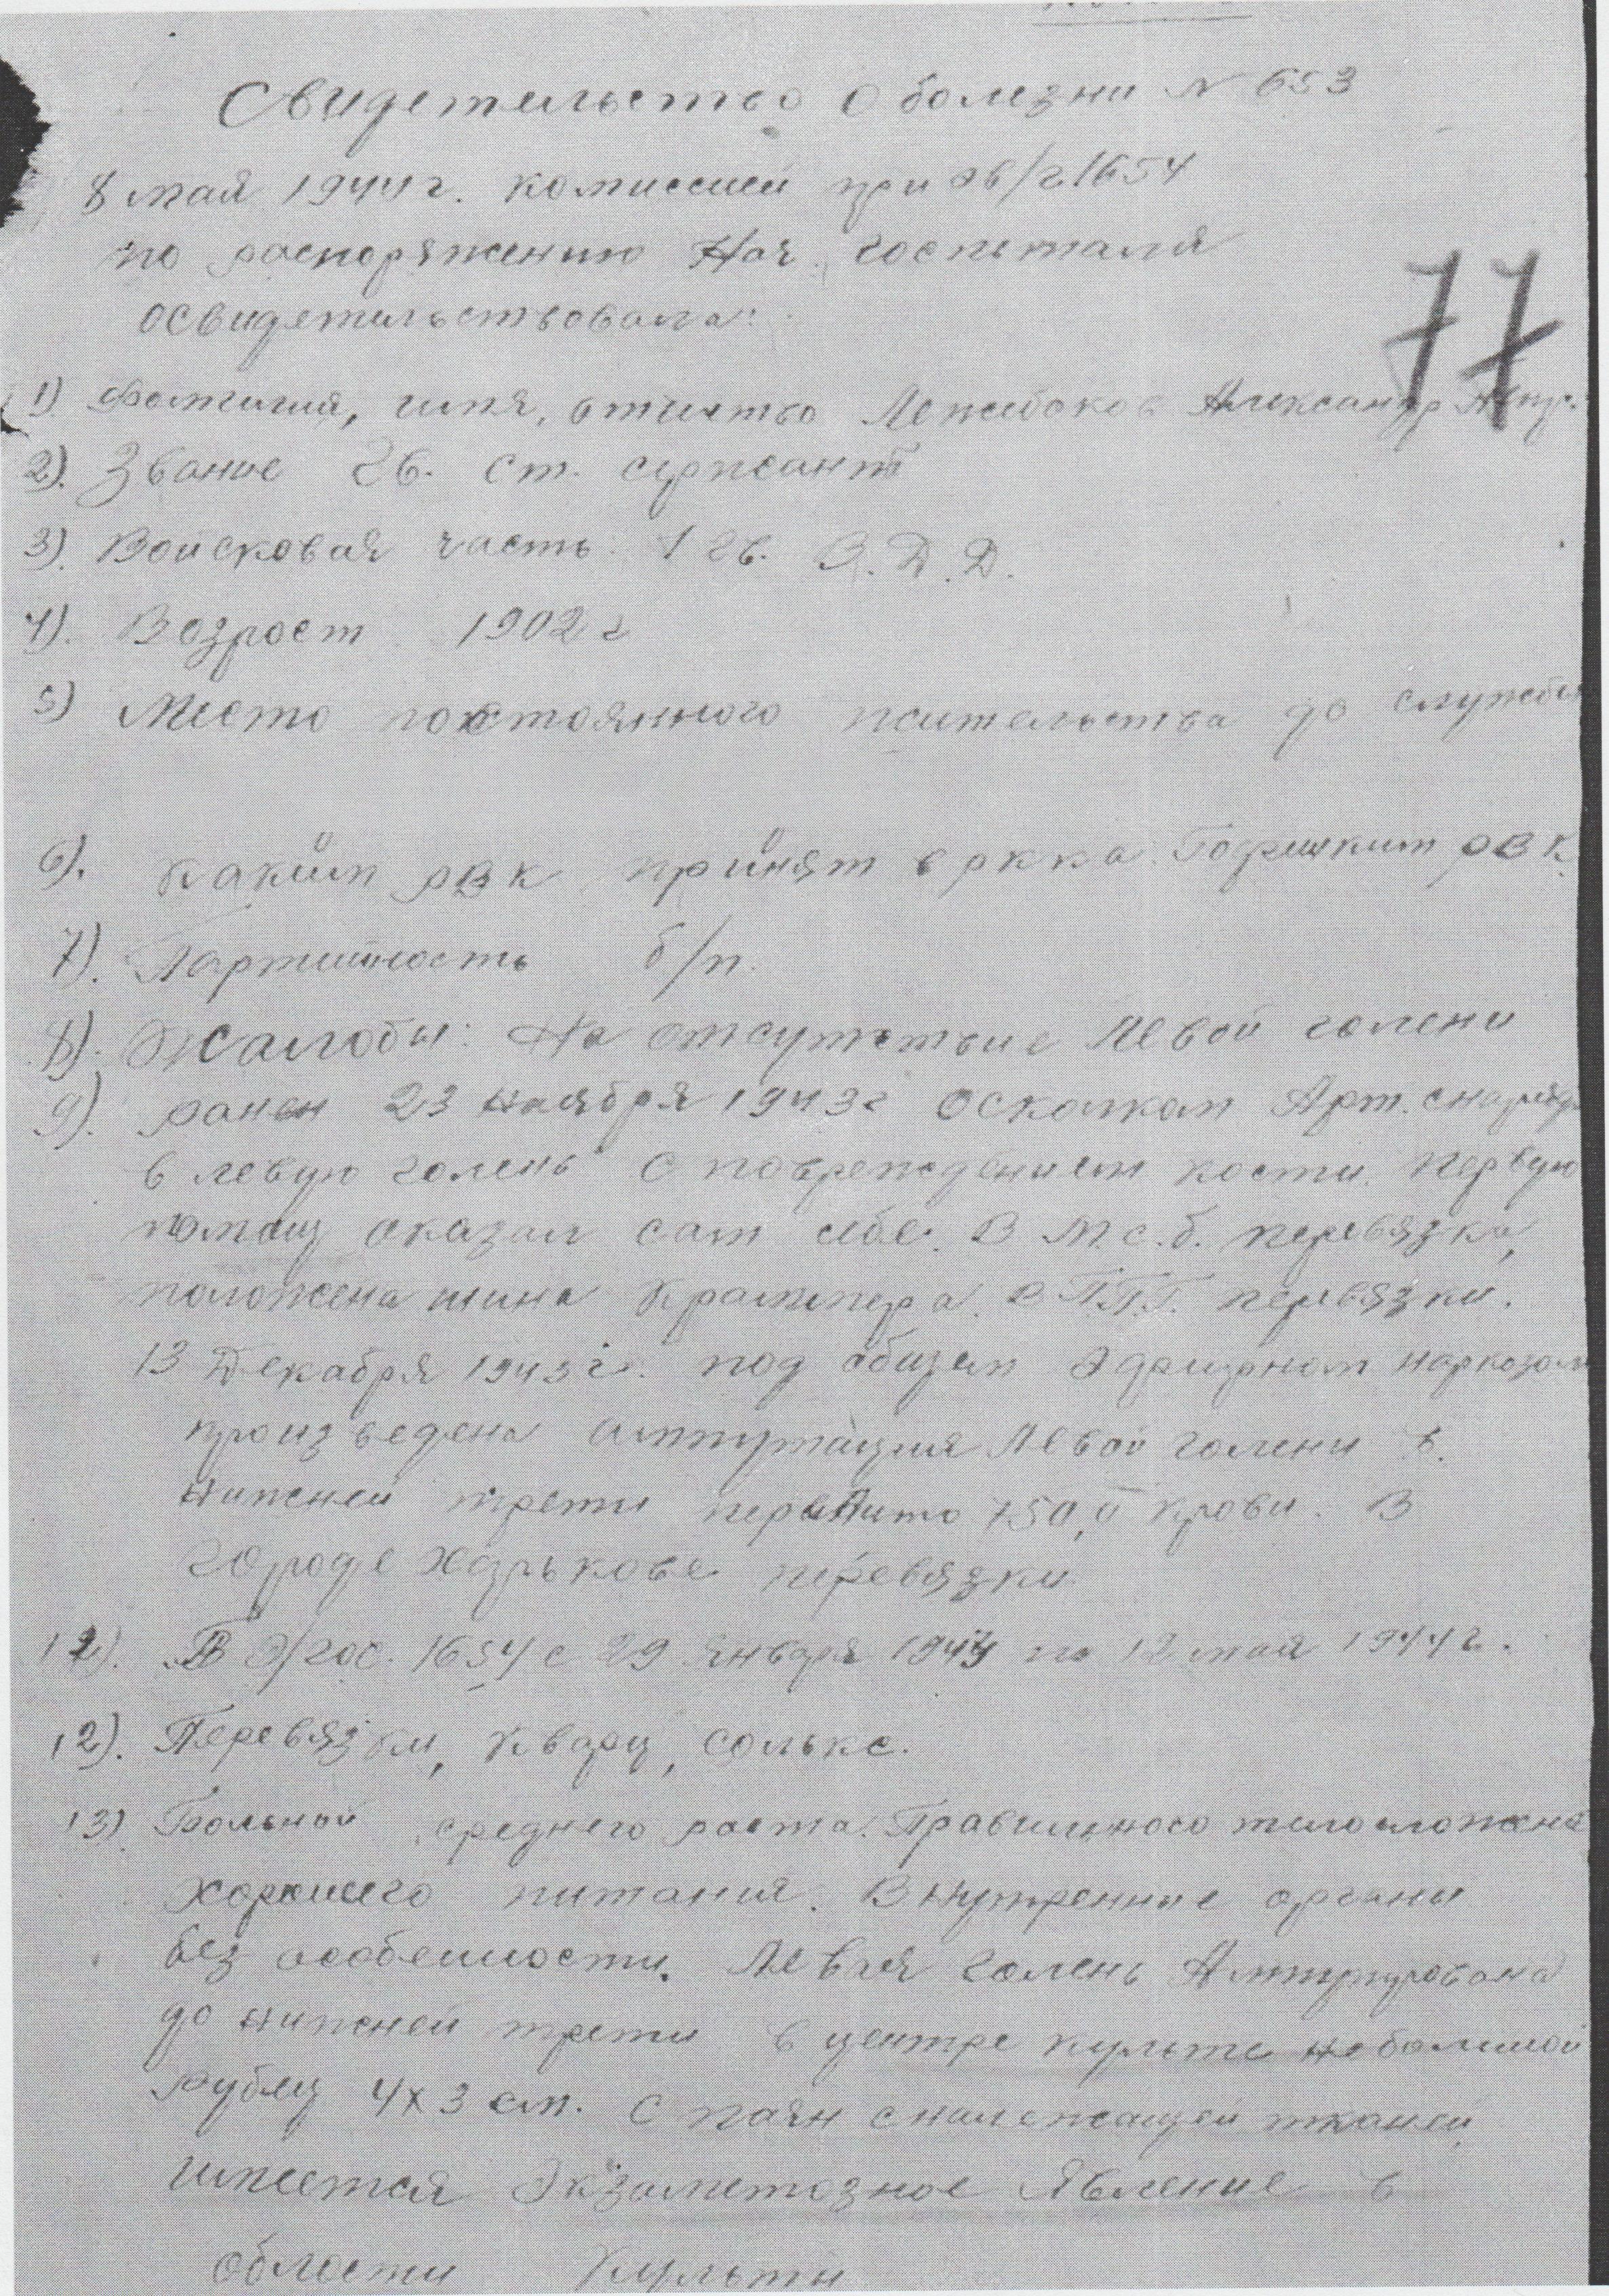 Свидетельство о болезни N 653
8 мая 1944 г. комиссией при эв/г 1654
по распоряжению Нач. госпиталя
освидетельствовала:
77
1). Фамилия, имя, отчество Лежебоков Александр
2). Звание Гв. ст. сержант
3). Войсковая часть 1 гв. В.Д.Д.
4). Возрост 1902 г
5) Место постоянного жительства до службы
6). Каким рвк принят в ркка. рвк
7). Партийность б/п.
8). Жалобы: На отсутствие Левой голени
9). ранен 23 ноября 1943 г осколком Арт. снаряда
в левую голень с повреждением кости. Первую
помощ оказал сам себе. В М.с.б. перевязка,
положена шина Краммера. В П.П.Г. перевязки.
13 Декабря 1943 г. под общем Эфирном наркозом
произведена Ампутация Левой голени в.
нижней трети перелито 750,0 крови. В
городе Харькове перевязки
В Э/гос. 1654 с 29 января 1944 по 12 мая 1944 г.
12). Перевязки, кварц, солькс.
13) Больной среднего роста. Правильного тилосложения
хорошего питания. Внутренние органы
без особенности. Левая голень Ампутирована
до нижней трети в центре культе небольшой
рубец 4х3 см. Спаян с нилежащей тканей,
имеется Экзаметозное явление в
области Культи